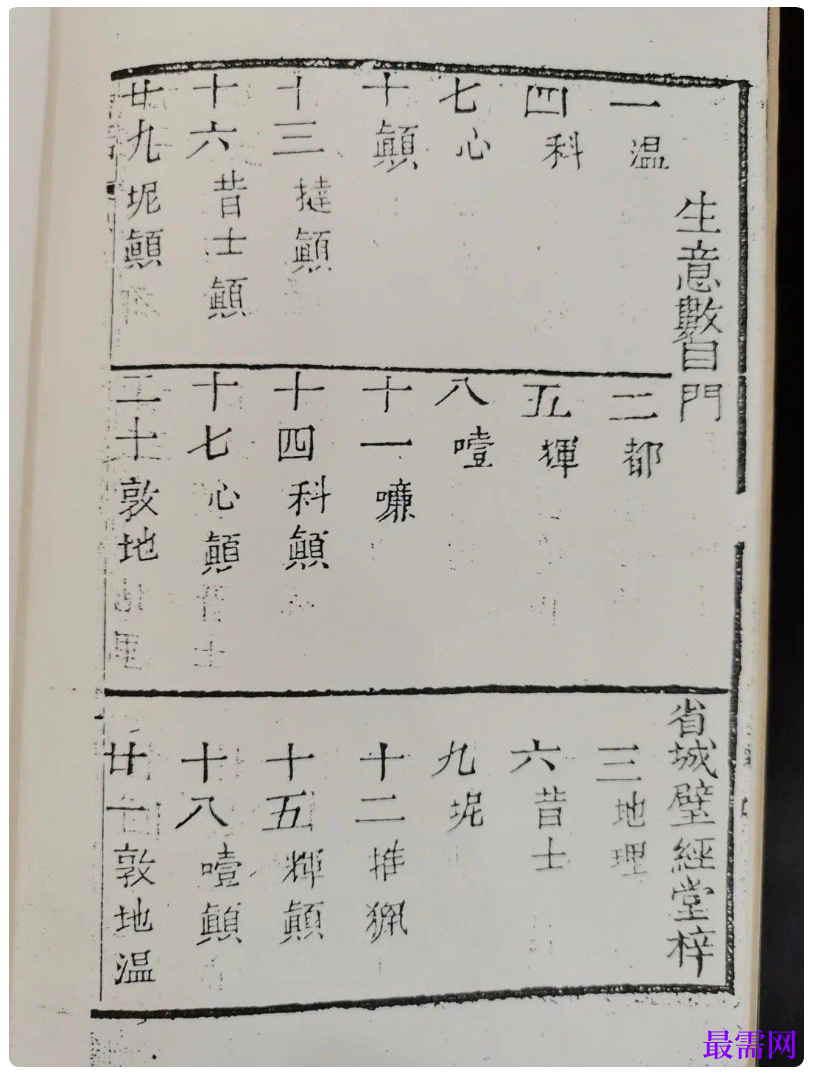 生意數目門
省城璧經堂梓
一 温
二 都
三 地理
四 科
五 輝
六 昔士
七 心
八 噎
九 坭
十 顛
十一 嗛
十二 推猟
十三 撻顛
十四 科顛
十五 輝顛
十六 昔士顛
十七 心顛
十八 噎顛
廿九 坭顛
二十 敦地
廿一 敦地温
最需网